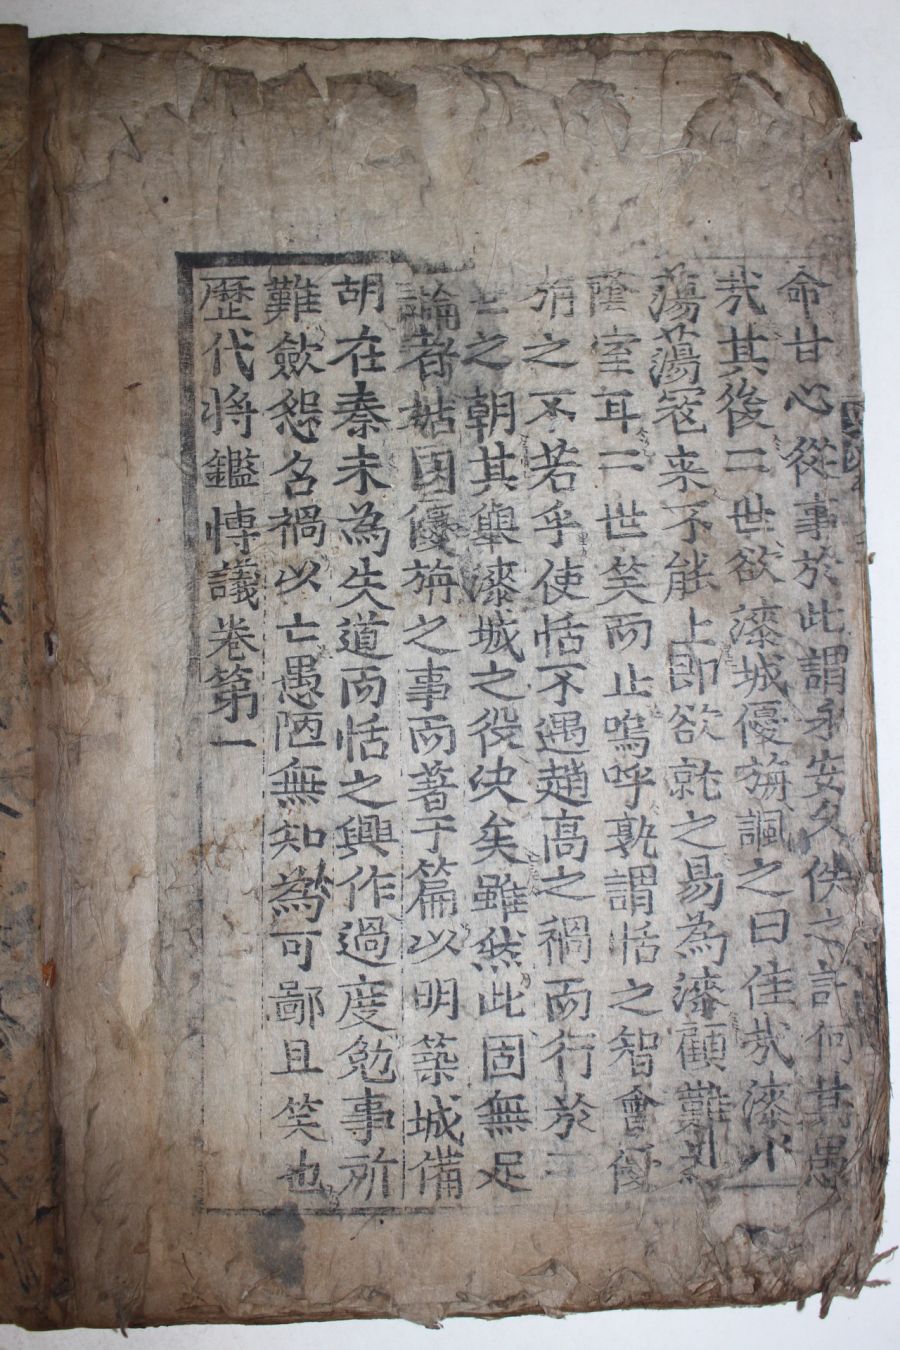 命甘心從事於此謂永安久佚之計何其愚
㢤其後二世欲漆城優旃諷之曰佳㢤漆城
蕩蕩宼来不能上即欲就之易為漆顧難
䕃室耳二世笑而止嗚呼孰謂恬之智會優
旃之不若乎使恬不遇趙高之禍而行於二
世之朝其輿漆城之役决矣雖然此固無足
論者姑因優旃之事而著于篇以明築城備
胡在秦未為失道而恬之興作過度勉事所
難斂怨名禍以亡愚陋無知為可鄙且笑也
歷代将鑑博議卷第一